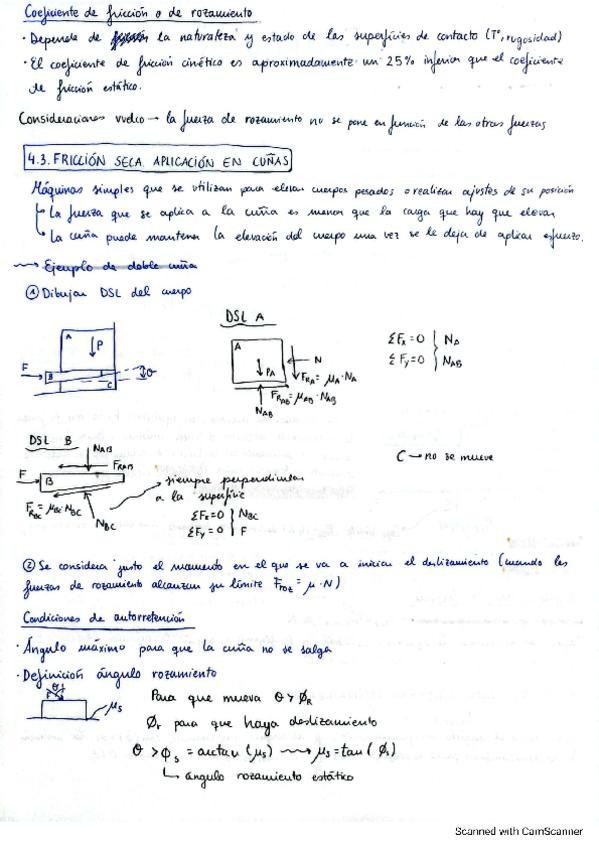 Coeficiente de fricción o de rozamiento
· Depende de la naturaleza y estado de las superficies de contacto (Tº, rugosidad)
· El coeficiente de fricción cinético es aproximadamente un 25% inferior que el coeficiente
de fricción estático.
Consideraciones vuelco → la fuerza de rozamiento no se pone en función de las otras fuerzas
4.3. FRICCIÓN SECA. APLICACIÓN EN CUÑAS
Máquinas simples que se utilizan para elevar cuerpos pesados o realizar ajustes de su posición
La fuerza que se aplica a la cuña es menor que la carga que hay que elevar
La cuña puede mantener la elevación del cuerpo una vez se le deja de aplicar esfuerzo.
Ejemplo de doble cuña
① Dibujar DSL del cuerpo
DSL A
A
P
F
B
C
θ
A
N
P_A
F_RA = μ_A · N_A
F_RAB = μ_AB · N_AB
N_AB
ΣFx = 0 } N_A
ΣFy = 0 } N_AB
DSL B
N_AB
F_RAB
F
B
F_RBC = μ_BC · N_BC
N_BC
siempre perpendicular
a la superficie
ΣFx = 0 } N_BC
ΣFy = 0 } F
C → no se mueve
② Se considera justo el momento en el que se va a iniciar el deslizamiento (cuando las
fuerzas de rozamiento alcanzan su límite F_roz = μ · N)
Condiciones de autorretención
· Ángulo máximo para que la cuña no se salga
· Definición ángulo rozamiento
θ
F
μs
Para que mueva θ > ϕ_R
ϕ_r para que haya deslizamiento
θ > ϕs = arctan (μs) → μs = tan (ϕs)
ángulo rozamiento estático
Scanned with CamScanner